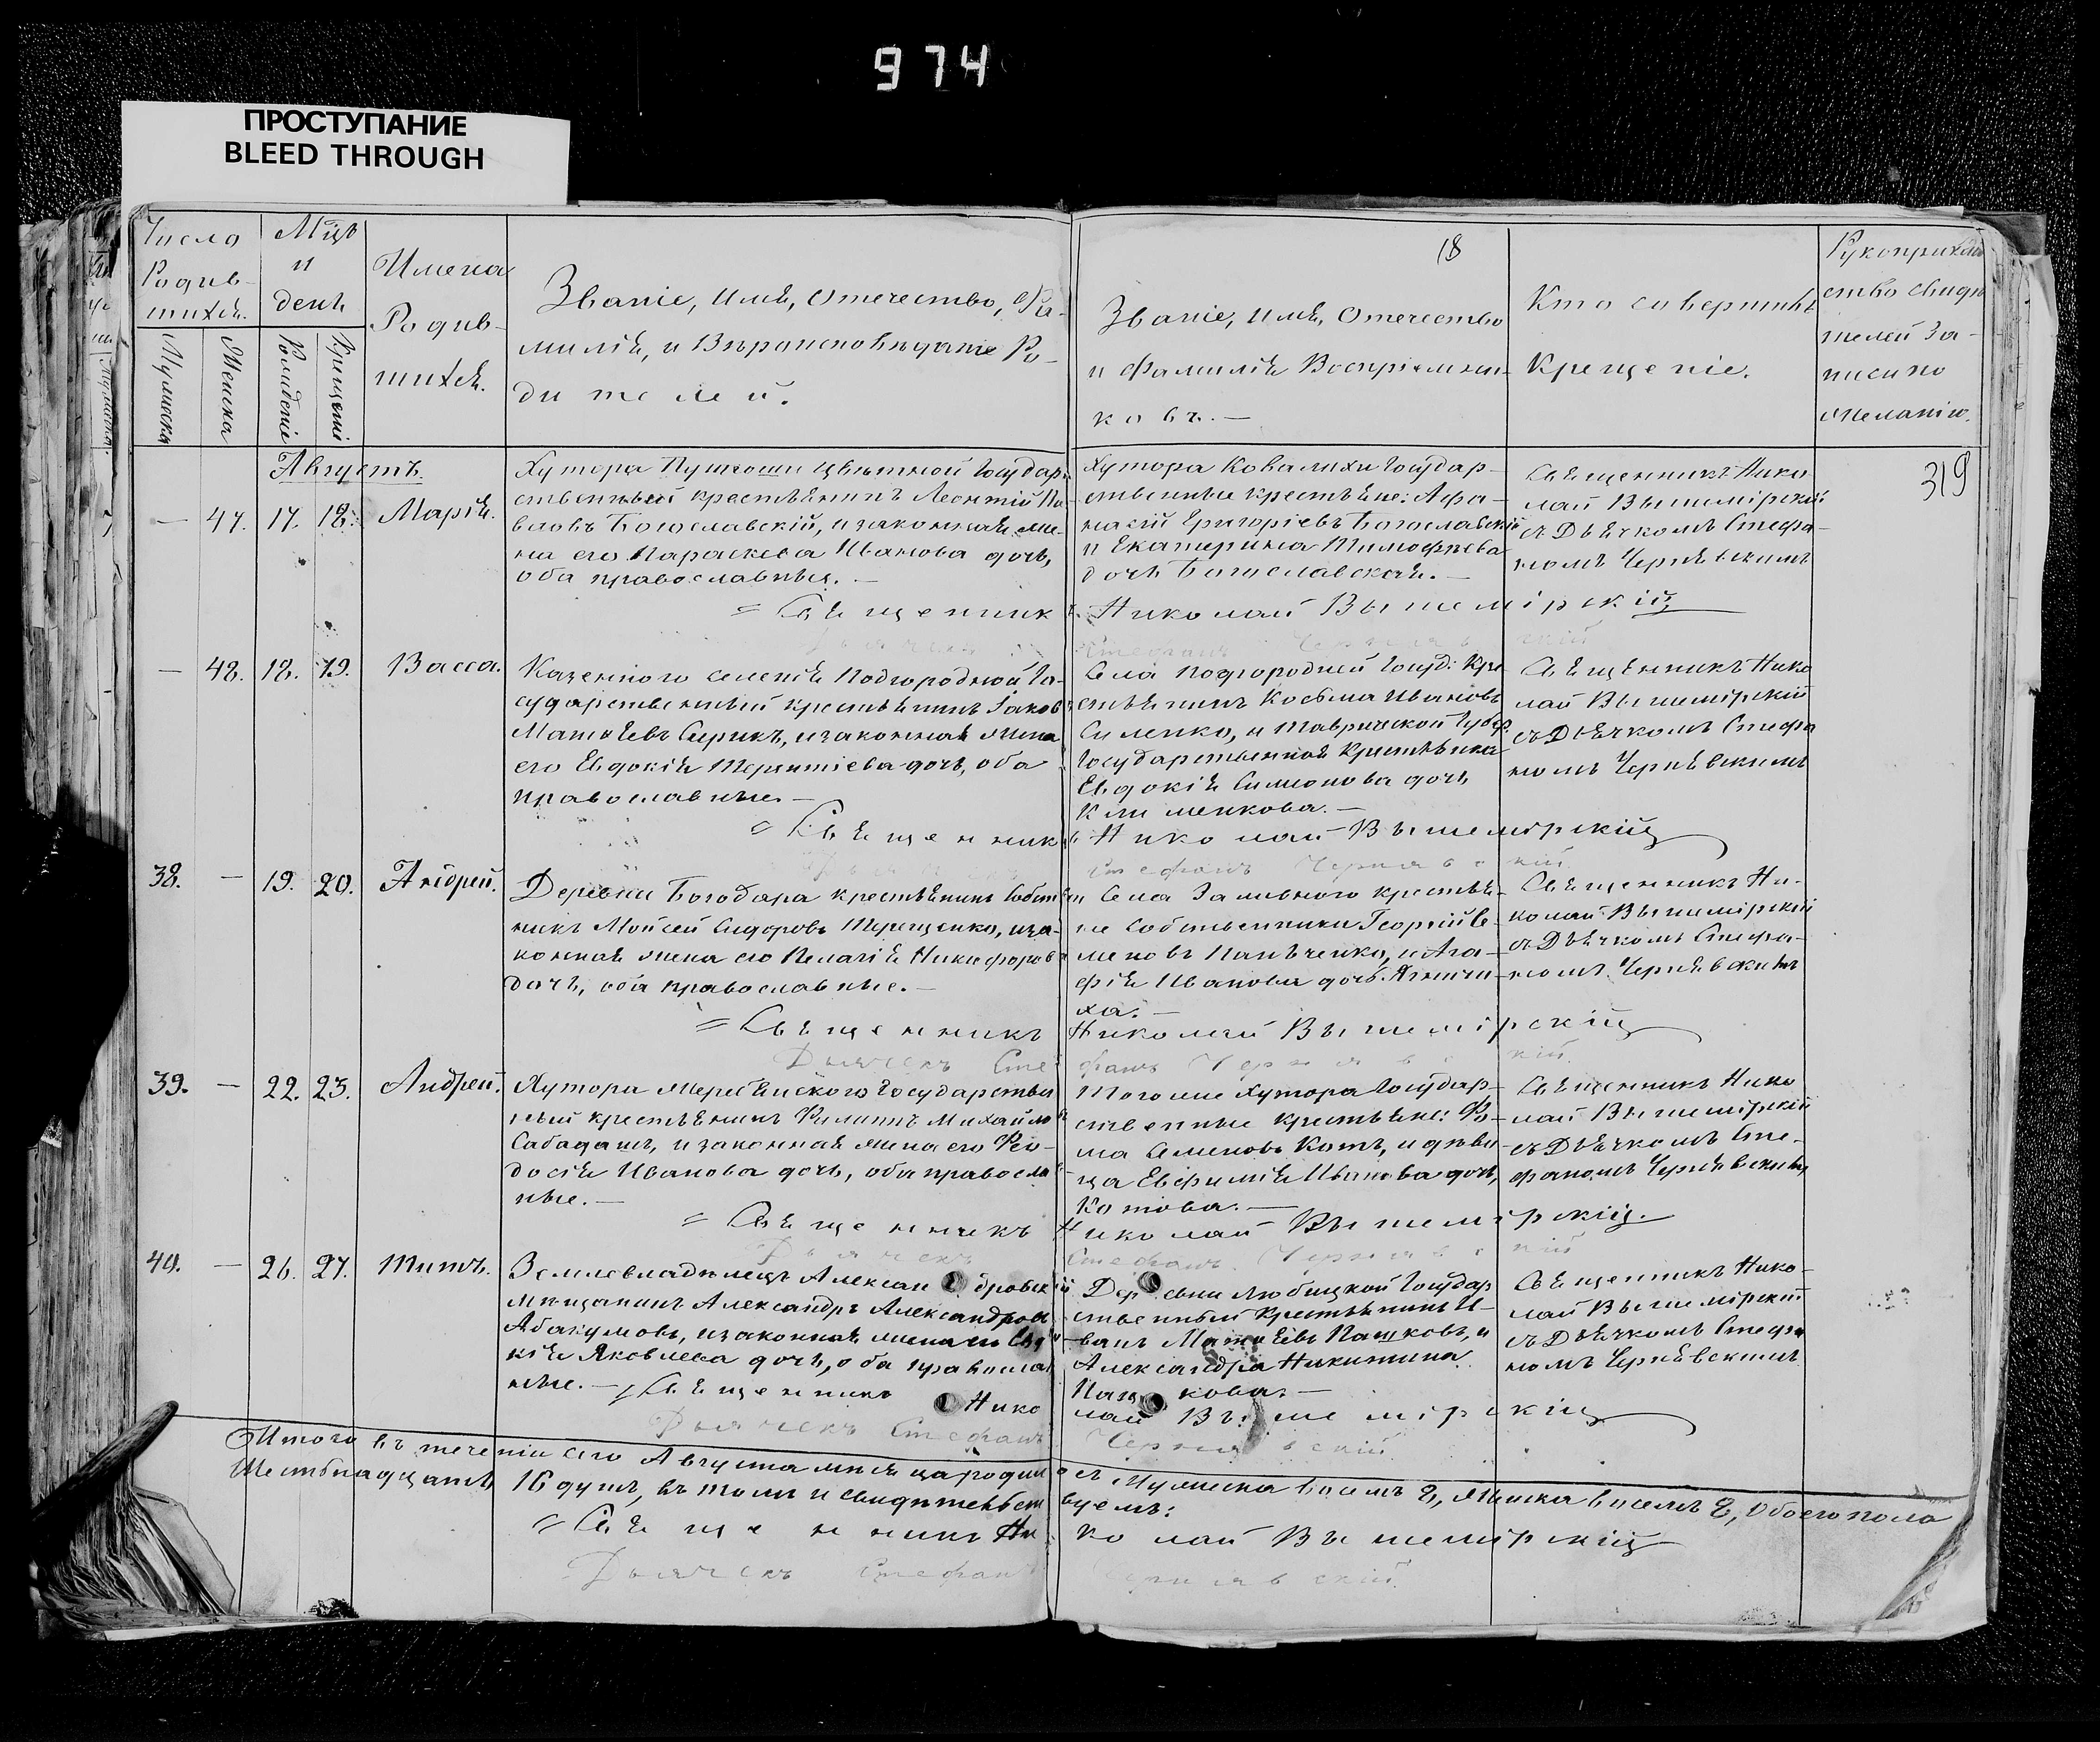 974
ПРОСТУПАНИЕ
BLEED THROUGH
Число
Родив-
шихся.
Мужеска
Женска
Мѣцъ
и
день
Рожденіе
Крещеніе
Имена
Родив-
шихся.
Званіе, имя, отечество, Фа-
милія, и Вѣроисповѣданіе Ро-
дителей.
18
Званіе, имя, отечество
и фамилія Воспріемни-
ковъ. —
Кто совершилъ
Крещеніе.
Рукоприклад
ство свидѣ
телей за-
писи по
желанію.
319
Августъ
— 47. 17. 18. Марія.
Хутора Путкоши цвѣтной Государ-
ственный крестьянинъ Леонтій Па-
вловъ Богославскій, и законная же-
на его Параскева Иванова дочь,
оба православныя. —
Хутора Ковалихи Государ-
ственные крестьяне: Афа-
насій Григоріевъ Богославскій
и Екатерина Тимофѣева
дочь Богославская. —
Священникъ Нико
лай Вышемірскій
съ Дьячкомъ Стефа-
номъ Чернявскимъ
= Священникъ Николай Вышемірскій
Стефанъ Чернявскій
— 48. 18. 19. Васса.
Казенного селенія Подгородной Го-
сударственный крестьянинъ Іаковъ
Матѳѣевъ Сирикъ, и законная жена
его Евдокія Терентіева дочь, оба
православные. —
Села Подгородней Госуд: Кре
стьянинъ Косьма Ивановъ
Силенко, и Таврической Губер.
Государственная Крестьянка
Евдокія Симонова дочь
Клименкова. —
Священникъ Нико
лай Вышемірскій
съ Дьячкомъ Стефа
номъ Чернявскимъ
= Священникъ Николай Вышемірскій
Стефанъ Чернявскій
38. — 19. 20. Андрей.
Деревни Богодара крестьянинъ Собствен
никъ Мойсей Сидоровъ Терещенко, и за-
конная жена его Пелагія Никифорова
дочь, оба православные. —
Села Заливного крестья-
не Собственники Георгій Се-
меновъ Панченко, и Ага-
фія Иванова дочь
ха. —
Священникъ Ни-
колай Вышемірскій
съ Дьячкомъ Стефа-
номъ Чернявскимъ
= Священникъ Николай Вышемірскій
Дьячекъ Стефанъ Чернявскій.
39. — 22. 23. Андрей.
Хутора Государствен
ный крестьянинъ Филиппъ Михайловъ
Сабадашъ, и законная жена его Фео-
досія Иванова дочь, оба православ-
ные. —
Того же Хутора Государ-
ственные крестьяне: Фо-
ма Семеновъ Котъ, и дѣви-
ца Евфимія Иванова дочь,
Котова. —
Священникъ Нико
лай Вышемірскій
съ Дьячкомъ Сте-
фаномъ Чернявскимъ
= Священникъ Николай Вышемірскій.
Дьячекъ Стефанъ Чернявскій
40. — 26. 27. Титъ.
Землевладѣлецъ Александровскій
мѣщанинъ Александръ Александровъ
Абакумовъ, и законная жена его Евдо-
кія Яковлева дочь, оба православ
ные. —
Деревни Любицкой Государ
ственный крестьянинъ И-
ванъ Матѳѣевъ Пашковъ, и
Александра Никитина
Пашкова. —
Священникъ Нико-
лай Вышемірскій
съ Дьячкомъ Стефа
номъ Чернявскимъ
Священникъ Николай Вышемірскій
Дьячекъ Стефанъ Чернявскій
Итого въ теченіи сего Августа мѣсяца родилось Мужеска восемь 8, Женска восемь 8, Обоего пола
Шестнадцать, 16 душъ, въ томъ и свидѣтельствуемъ:
= Священникъ Николай Вышемірскій
Дьячекъ Стефанъ Чернявскій